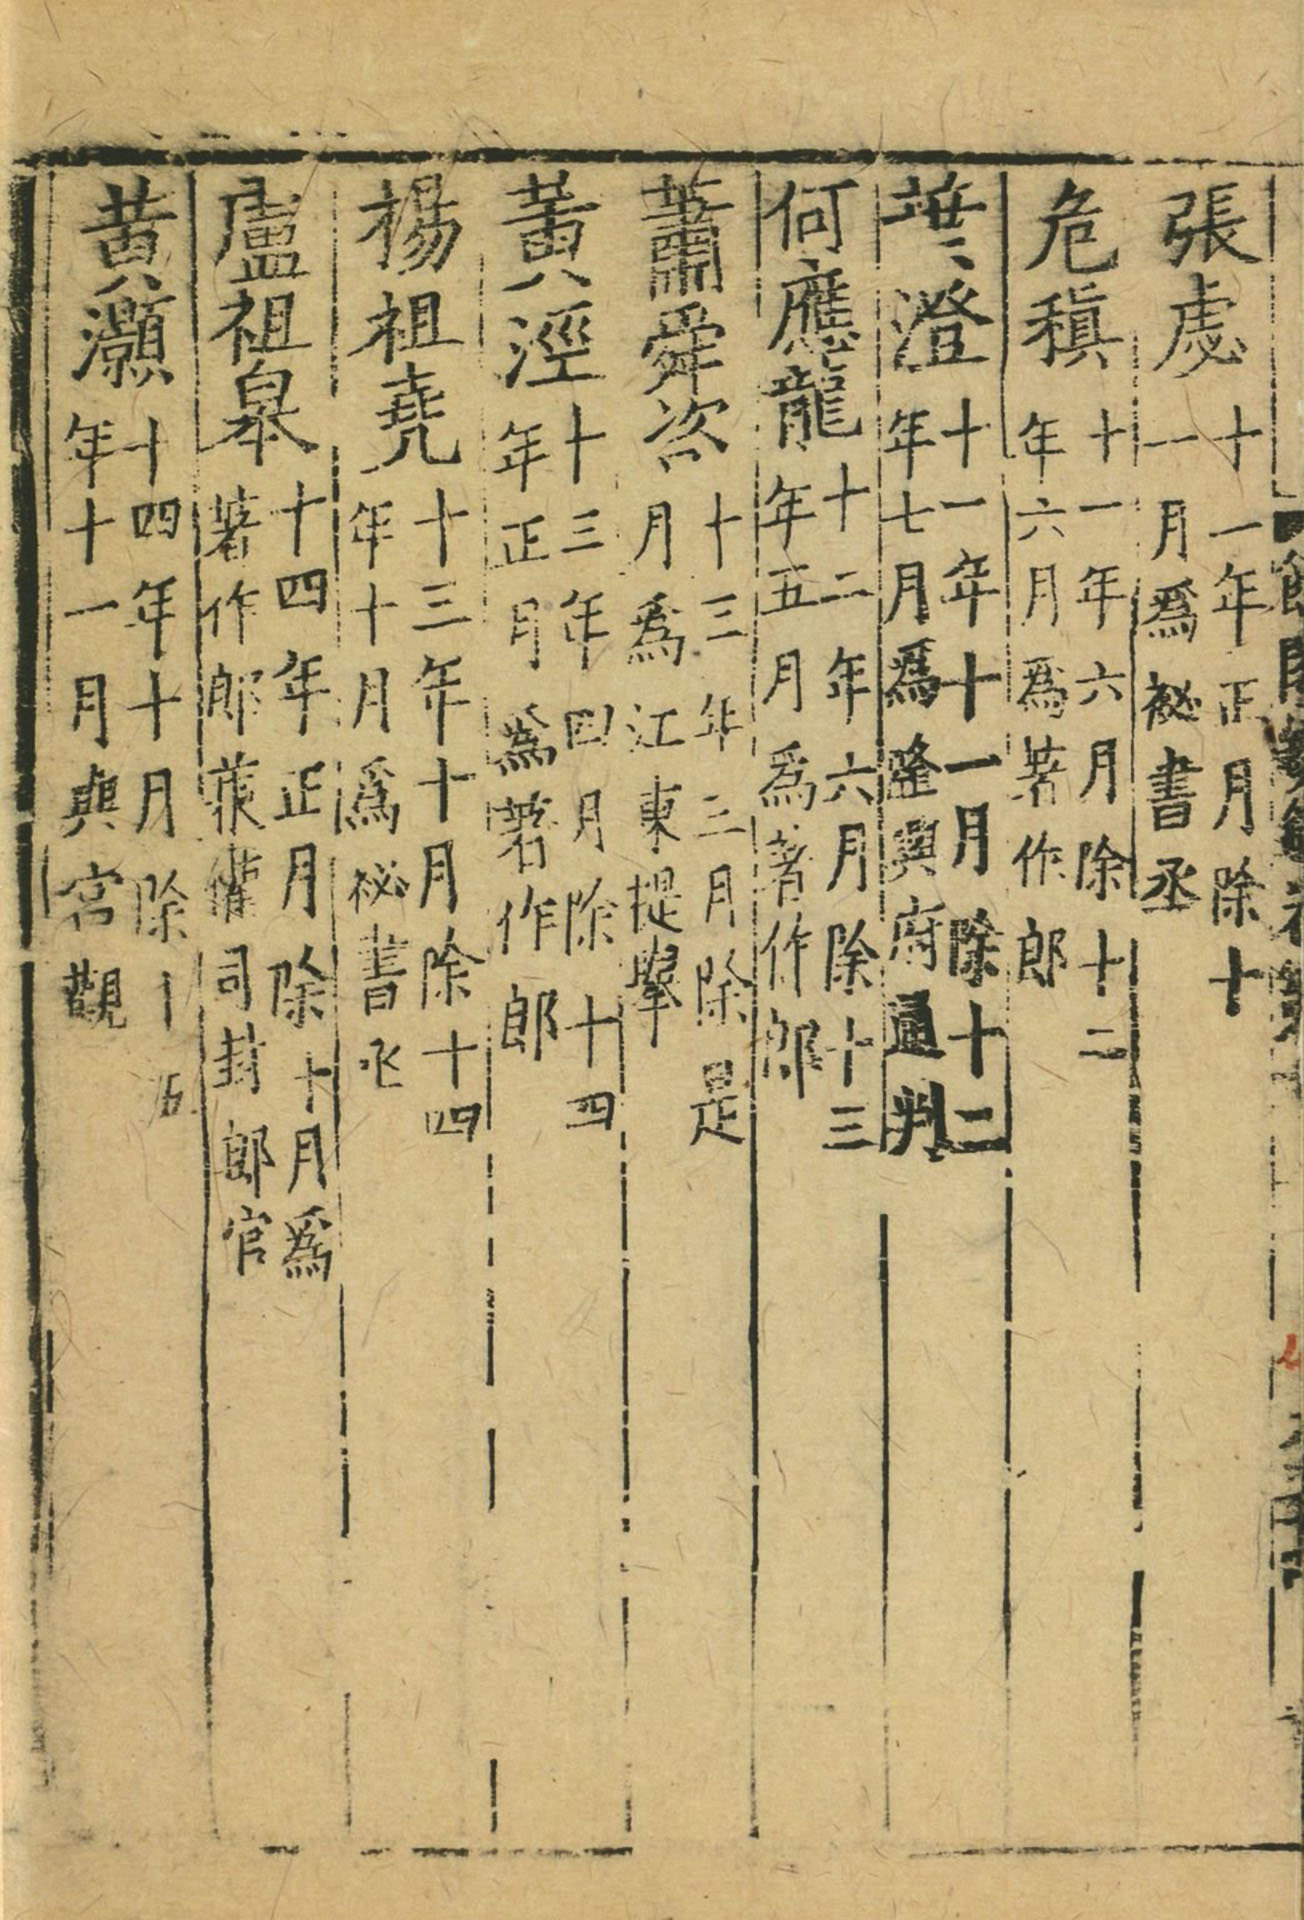 張虙 十一年正月除十
一月爲祕書丞
危稹 十一年六月除十二
年六月爲著作郎
葉澄 十一年十一月除十二
年七月爲隆興府通判
何應龍 十二年六月除十三
年五月爲著作郎
蕭舜咨 十三年三月除是
月爲江東提舉
黃涇 十三年四月除十四
年正月爲著作郎
楊祖堯 十三年十月除十四
年十月爲祕書丞
盧祖皋 十四年正月除十月爲
著作郎兼權司封郎官
黃灝 十四年十月除十五
年十一月與宮觀